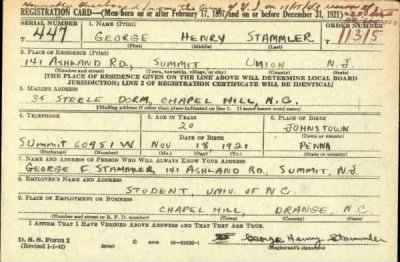 REGISTRATION CARD—(Men born on or after February 17, 1897, and on or before December 31, 1921)
SERIAL NUMBER 1. NAME (Print) ORDER NUMBER
447 GEORGE HENRY STAMMLER 11315
(First) (Middle) (Last)
2. PLACE OF RESIDENCE (Print)
141 ASHLAND RD., SUMMIT UNION N.J.
(Number and street) (Town, township, village, or city) (County) (State)
[THE PLACE OF RESIDENCE GIVEN ON THE LINE ABOVE WILL DETERMINE LOCAL BOARD
JURISDICTION; LINE 2 OF REGISTRATION CERTIFICATE WILL BE IDENTICAL]
3. MAILING ADDRESS
35 STEELE DORM, CHAPEL HILL, N.C.
[Mailing address if other than place indicated on line 2. If same insert word same]
4. TELEPHONE 5. AGE IN YEARS 6. PLACE OF BIRTH
20 JOHNSTOWN
DATE OF BIRTH (Town or county)
SUMMIT 60951W NOV 18 1921 PENNA
(Exchange) (Number) (Mo.) (Day) (Yr.) (State or country)
7. NAME AND ADDRESS OF PERSON WHO WILL ALWAYS KNOW YOUR ADDRESS
GEORGE F. STAMMLER, 141 ASHLAND RD, SUMMIT, N.J.
8. EMPLOYER'S NAME AND ADDRESS
STUDENT, UNIV. OF N.C.
9. PLACE OF EMPLOYMENT OR BUSINESS
CHAPEL HILL, ORANGE, N.C.
(Number and street or R. F. D. number) (Town) (County) (State)
I AFFIRM THAT I HAVE VERIFIED ABOVE ANSWERS AND THAT THEY ARE TRUE.
D. S. S. Form 1 George Henry Stammler
(Revised 1-1-42) (Registrant's signature)